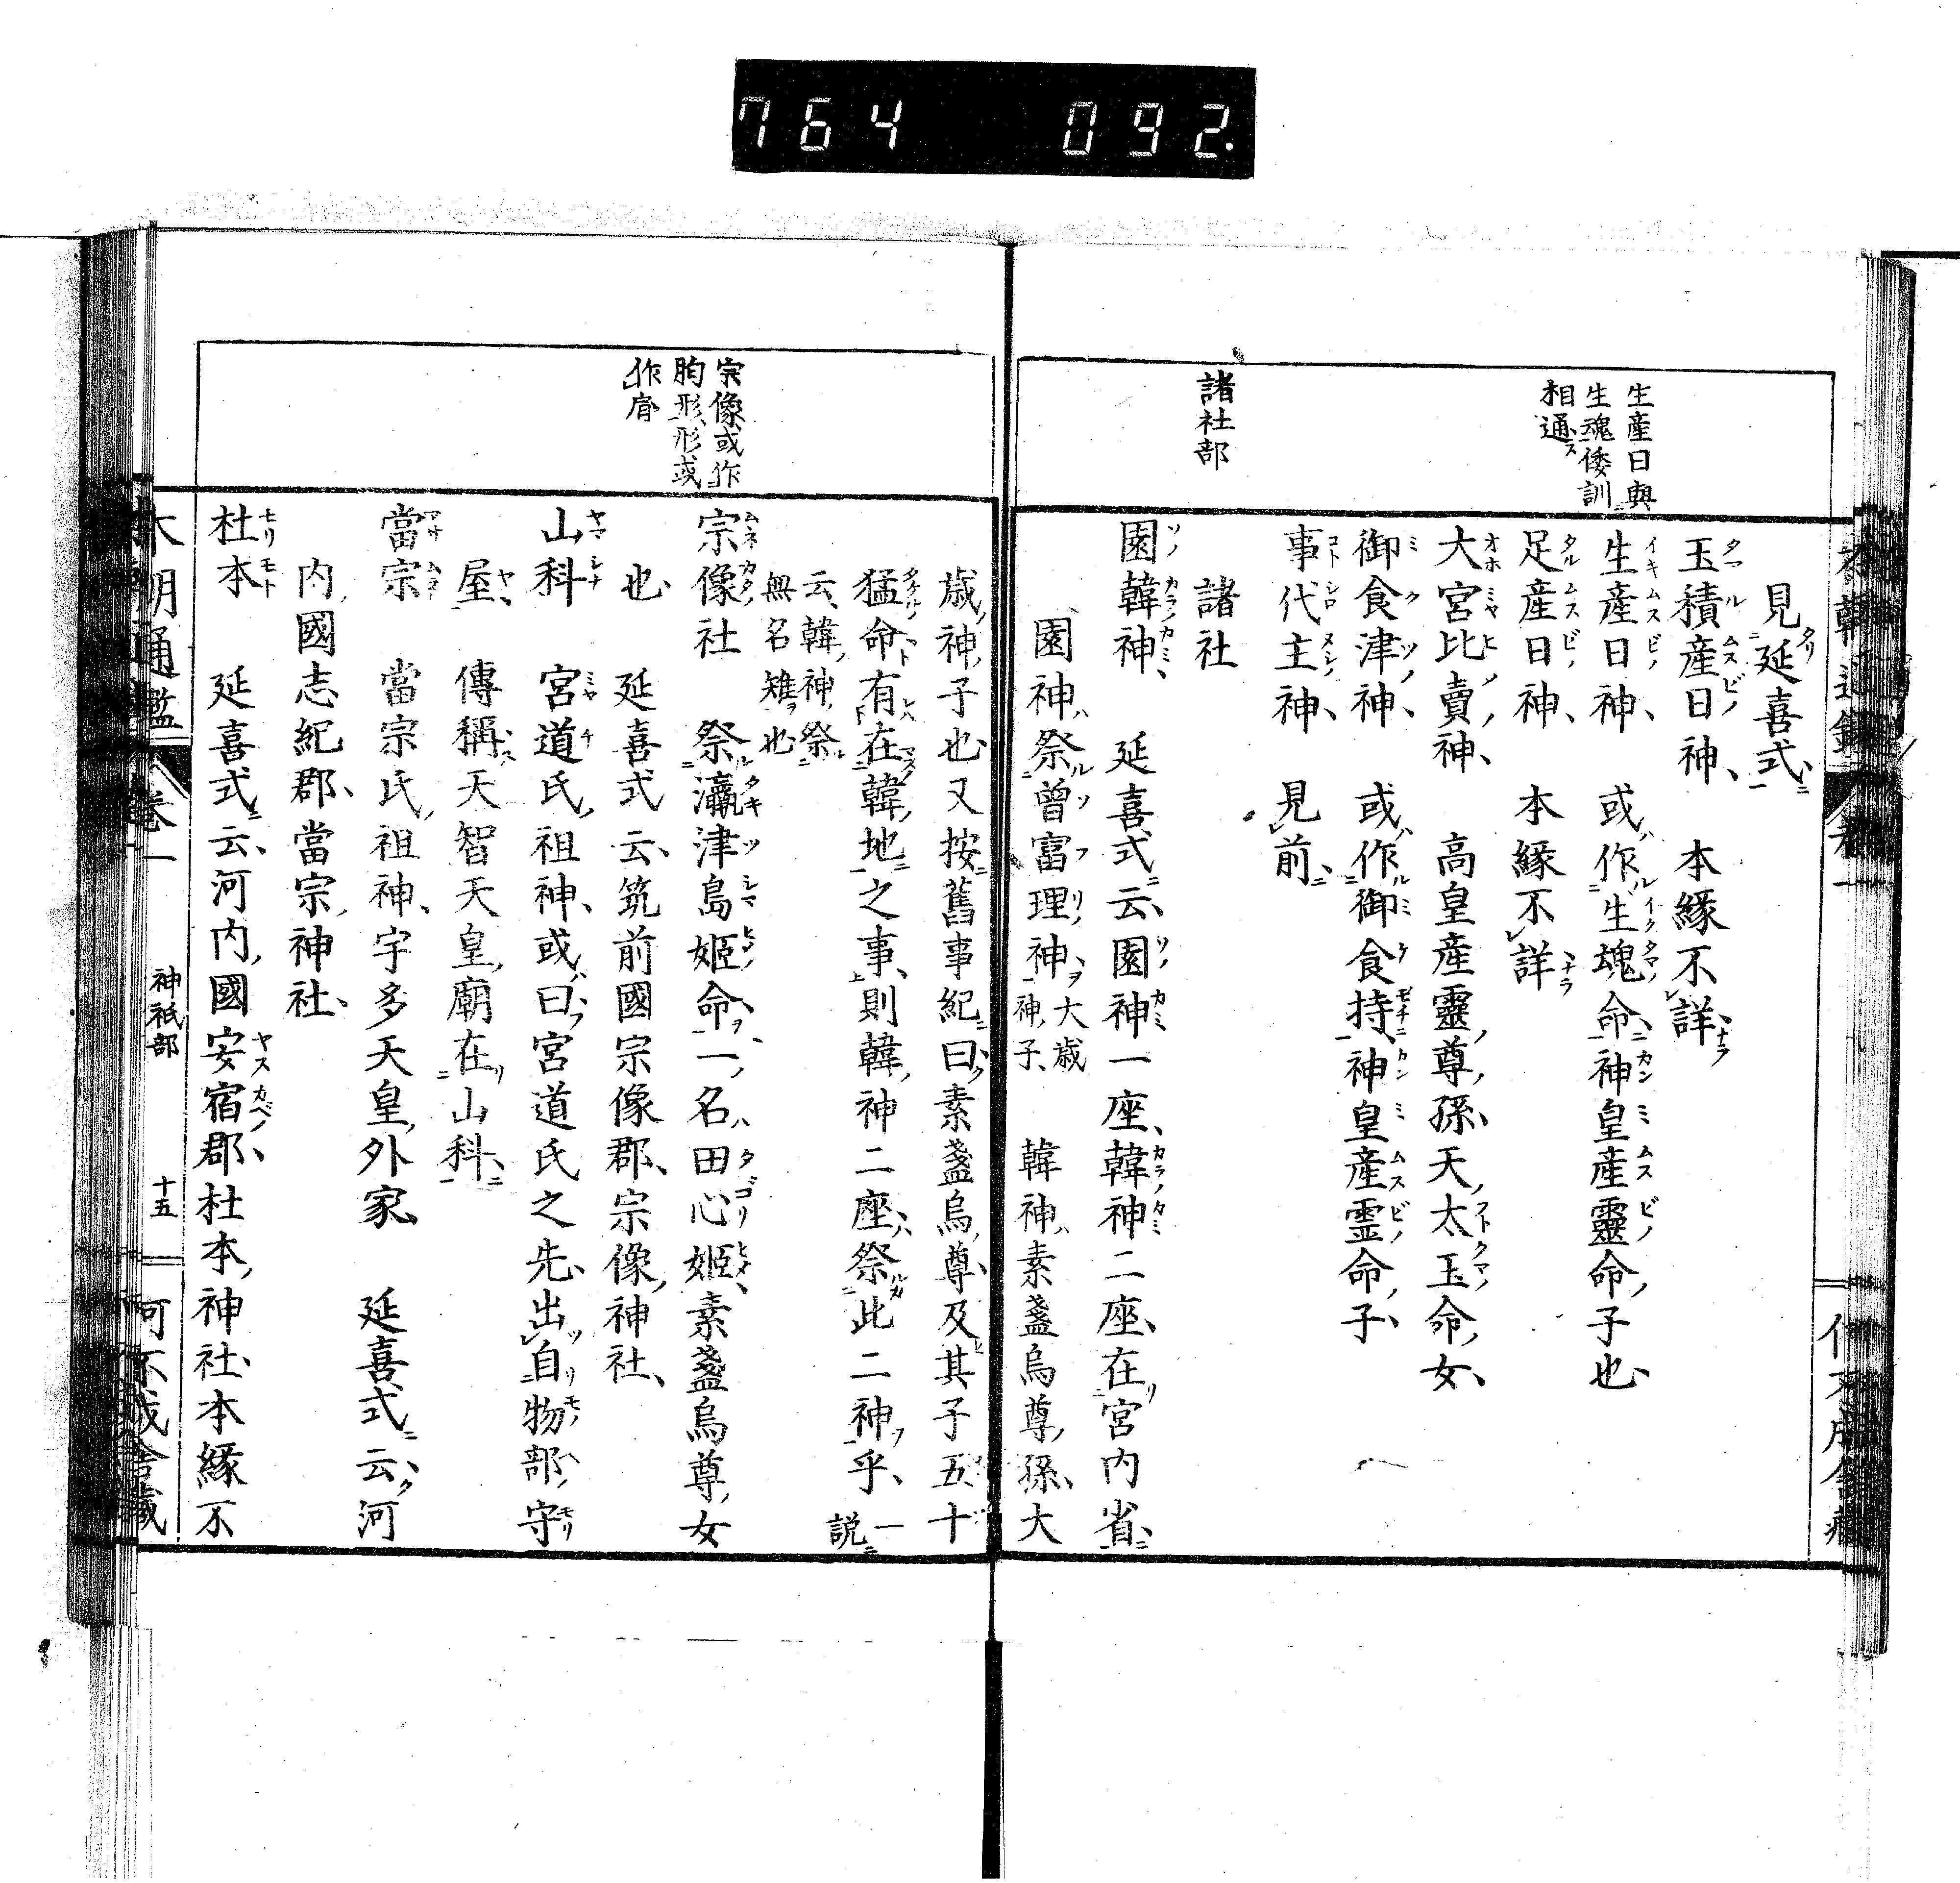 764 092.
生産日與
生魂倭訓
相通ス
諸社部
見延喜式
玉積産日神 本縁不詳
生産日神 或作生魂命神皇産靈命子也
足産日神 本縁不詳
大宮比賣神 高皇産靈尊孫天太玉命女
御食津神 或作御食持神皇産霊命子
事代主神 見前
諸社
園韓神 延喜式云園神一座韓神二座在宮内省
園神祭曽富理神 大歳神子 韓神素盞烏尊孫大
宗像或作
胸形形或
作肩
歳神子也又按舊事紀曰素盞烏尊及其子五十
猛命有在韓地之事則韓神二座祭此二神乎 一説
云韓神祭
無名雉也
宗像社 祭瀛津島姫命一名田心姫素盞烏尊女
也 延喜式云筑前國宗像郡宗像神社
山科 宮道氏祖神或曰宮道氏之先出自物部守
屋 傳稱天智天皇廟在山科
當宗 當宗氏祖神宇多天皇外家 延喜式云河
内國志紀郡當宗神社
杜本 延喜式云河内國安宿郡杜本神社本縁不
本朝通鑑 卷一 神祇部 十五